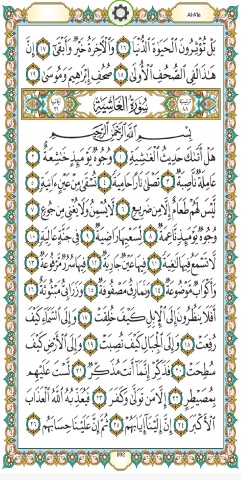 Al-A'la
بَلْ تُؤْثِرُونَ الْحَيَوٰةَ الدُّنْيَا ١٦ وَالْآخِرَةُ خَيْرٌ وَأَبْقَىٰ ١٧ إِنَّ
هَٰذَا لَفِي الصُّحُفِ الْأُولَىٰ ١٨ صُحُفِ إِبْرَاهِيمَ وَمُوسَىٰ ١٩
سُورَةُ الْغَاشِيَةِ ٨٨
بِسْمِ اللَّهِ الرَّحْمَٰنِ الرَّحِيمِ
هَلْ أَتَىٰكَ حَدِيثُ الْغَٰشِيَةِ ١ وُجُوهٌ يَوْمَئِذٍ خَٰشِعَةٌ ٢
عَامِلَةٌ نَّاصِبَةٌ ٣ تَصْلَىٰ نَارًا حَامِيَةً ٤ تُسْقَىٰ مِنْ عَيْنٍ ءَانِيَةٍ ٥
لَّيْسَ لَهُمْ طَعَامٌ إِلَّا مِن ضَرِيعٍ ٦ لَّا يُسْمِنُ وَلَا يُغْنِي مِن جُوعٍ ٧
وُجُوهٌ يَوْمَئِذٍ نَّاعِمَةٌ ٨ لِّسَعْيِهَا رَاضِيَةٌ ٩ فِي جَنَّةٍ عَالِيَةٍ ١٠
لَّا تَسْمَعُ فِيهَا لَٰغِيَةً ١١ فِيهَا عَيْنٌ جَارِيَةٌ ١٢ فِيهَا سُرُرٌ مَّرْفُوعَةٌ ١٣
وَأَكْوَابٌ مَّوْضُوعَةٌ ١٤ وَنَمَارِقُ مَصْفُوفَةٌ ١٥ وَزَرَابِيُّ مَبْثُوثَةٌ ١٦
أَفَلَا يَنظُرُونَ إِلَى الْإِبِلِ كَيْفَ خُلِقَتْ ١٧ وَإِلَى السَّمَاءِ كَيْفَ
رُفِعَتْ ١٨ وَإِلَى الْجِبَالِ كَيْفَ نُصِبَتْ ١٩ وَإِلَى الْأَرْضِ كَيْفَ
سُطِحَتْ ٢٠ فَذَكِّرْ إِنَّمَا أَنتَ مُذَكِّرٌ ٢١ لَّسْتَ عَلَيْهِم
بِمُصَيْطِرٍ ٢٢ إِلَّا مَن تَوَلَّىٰ وَكَفَرَ ٢٣ فَيُعَذِّبُهُ اللَّهُ الْعَذَابَ
الْأَكْبَرَ ٢٤ إِنَّ إِلَيْنَا إِيَابَهُمْ ٢٥ ثُمَّ إِنَّ عَلَيْنَا حِسَابَهُم ٢٦
592